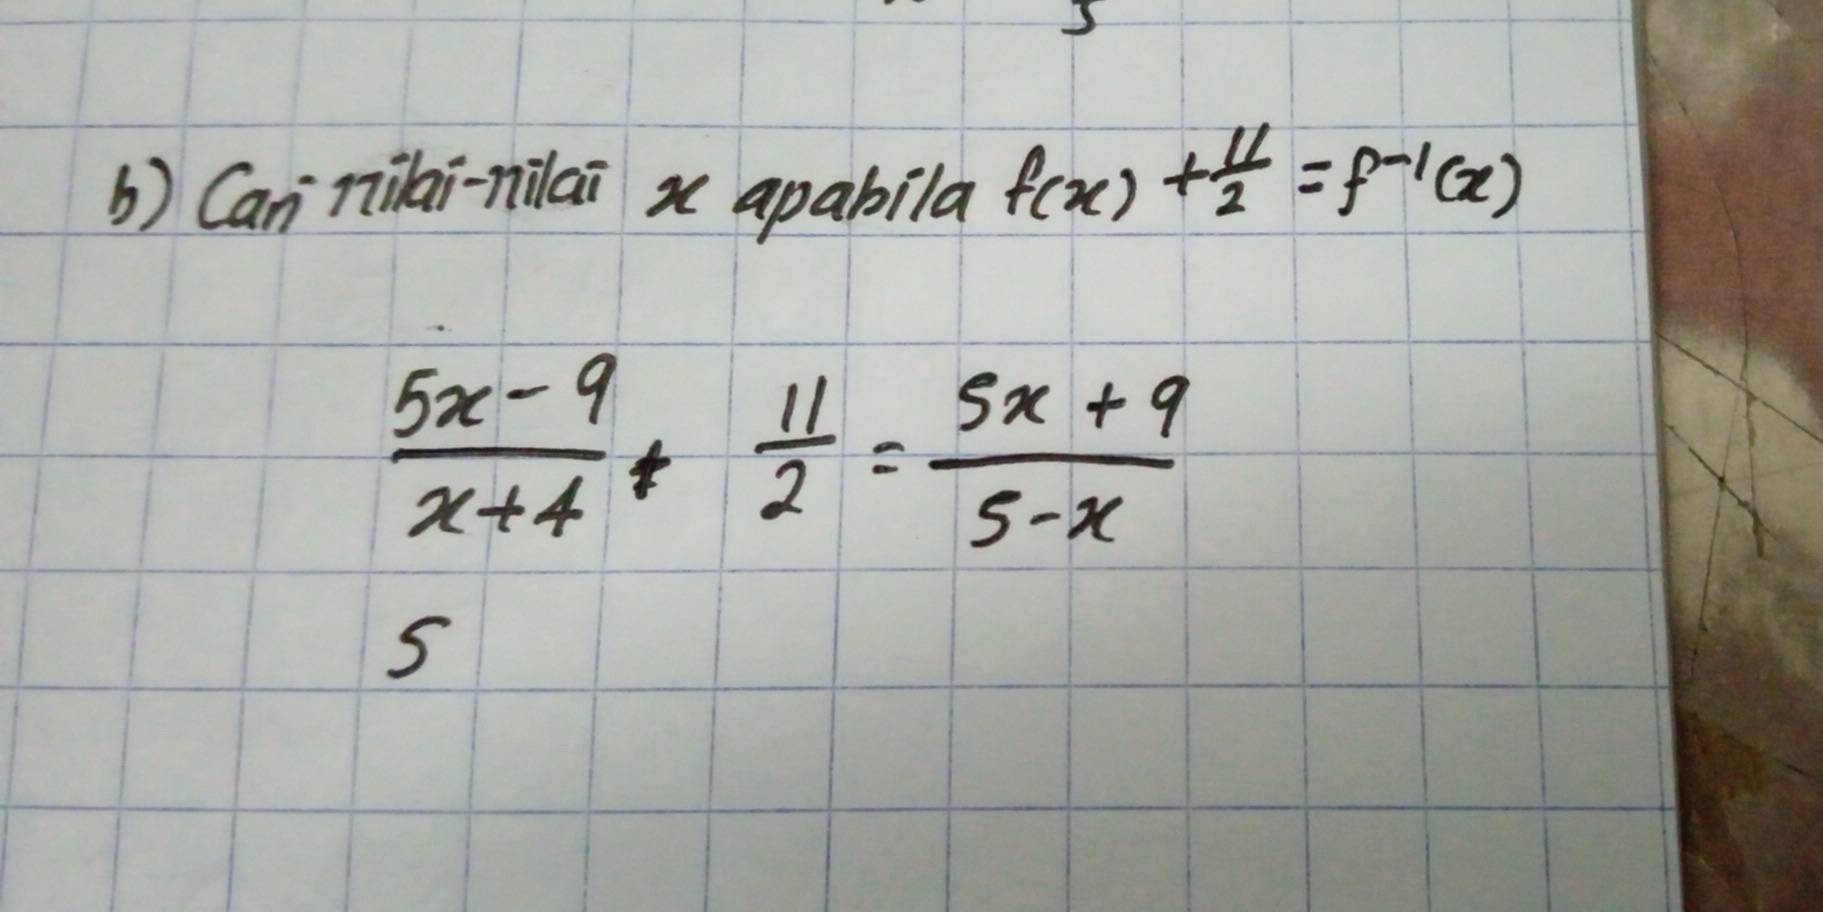 5
b) Cari nilai-nilai x apabila f(x) + 11/2 = f⁻¹(x)
5x - 9 / x + 4 + 11/2 = 5x + 9 / 5 - x
5